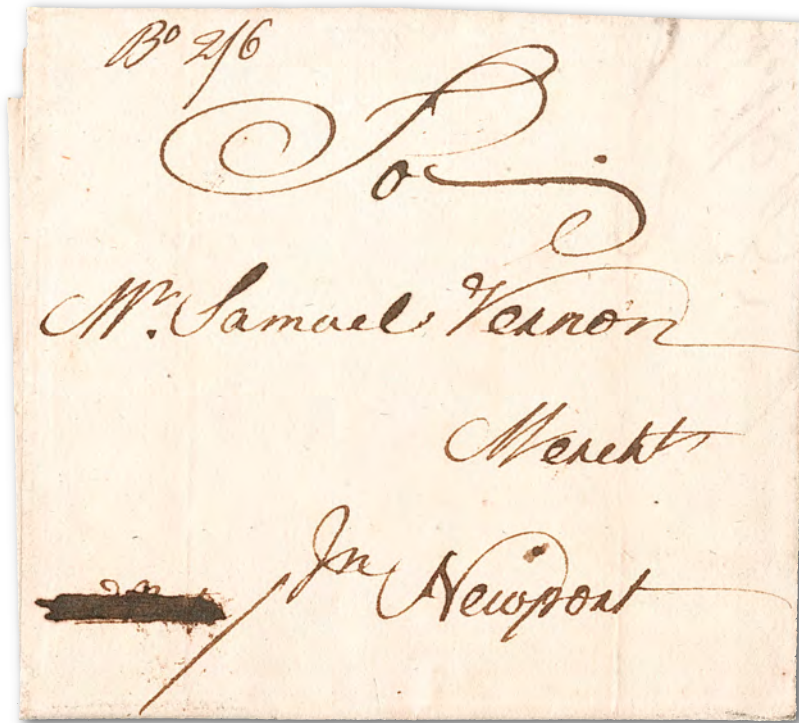 Bo 2/6
To
Mr. Samuel Vernon
Mercht
In Newport